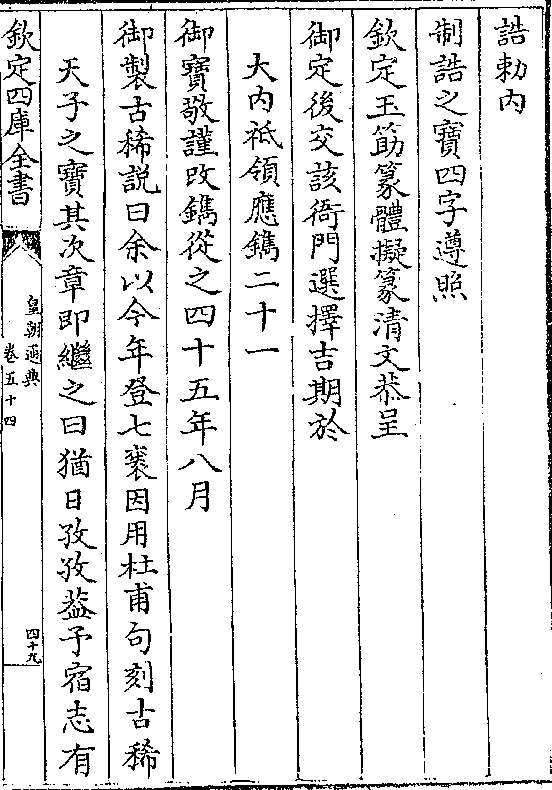 誥勅内
制誥之寳四字遵照
欽定玉筯篆體擬篆清文恭呈
御定後交該衙門選擇吉期於
大内祗領應鐫二十一
御寳敬謹改鐫從之四十五年八月
御製古稀説曰余以今年登七袠因用杜甫句刻古稀
天子之寳其次章即繼之曰猶日孜孜葢予宿志有
欽定四庫全書
皇朝通典
卷五十四
四十九